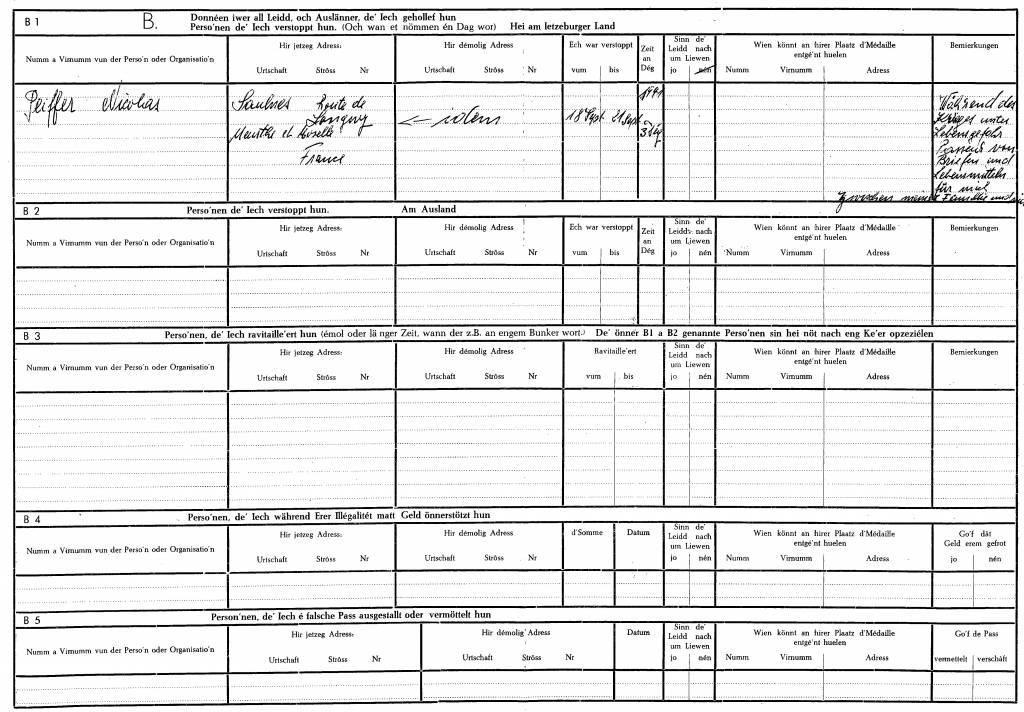 B 1
B.
Donnéen iwer all Leidd, och Auslänner, de' Iech gehollef hun
Perso'nen de' Iech verstoppt hun. (Och wan et nömmen én Dag wor) Hei am letzeburger Land
Numm a Virnumm vun der Perso'n oder Organisatio'n
Hir jetzeg Adress:
Urtschaft Ströss Nr
Hir démolig Adress
Urtschaft Ströss Nr
Ech war verstoppt
vum bis
Zeit
an
Dég
Sinn de'
Leidd nach
um Liewen
jo nén
Wien könnt an hirer Plaatz d'Médaille
entgé'nt huelen
Numm Virnumm Adress
Bemierkungen
Peiffer Nicolas
Saulnes Route de
Longwy
Meurthe et Moselle
France
← idem
18 Sept 21 Sept
1941
3 Dég
Während des
Krieges unter
Lebensgefahr
Passeur von
Briefen und
Lebensmitteln
für mich
zwischen meiner Familie und
B 2
Perso'nen de' Iech verstoppt hun. Am Ausland
Numm a Virnumm vun der Perso'n oder Organisatio'n
Hir jetzeg Adress:
Urtschaft Ströss Nr
Hir démolig Adress
Urtschaft Ströss Nr
Ech war verstoppt
vum bis
Zeit
an
Dég
Sinn de'
Leidd nach
um Liewen
jo nén
Wien könnt an hirer Plaatz d'Médaille
entgé'nt huelen
Numm Virnumm Adress
Bemierkungen
B 3
Perso'nen, de' Iech ravitaille'ert hun (émol oder lä nger Zeit, wann der z.B. an engem Bunker wort.) De' önner B1 a B2 genannte Perso'nen sin hei nöt nach eng Ke'er opzeziélen
Numm a Virnumm vun der Perso'n oder Organisatio'n
Hir jetzeg Adress:
Urtschaft Ströss Nr
Hir démolig Adress
Urtschaft Ströss Nr
Ravitaille'ert
vum bis
Sinn de'
Leidd nach
um Liewen
jo nén
Wien könnt an hirer Plaatz d'Médaille
entgé'nt huelen
Numm Virnumm Adress
Bemierkungen
B 4
Perso'nen, de' Iech während Erer Illégalitét matt Geld önnerstötzt hun
Numm a Virnumm vun der Perso'n oder Organisatio'n
Hir jetzeg Adress:
Urtschaft Ströss Nr
Hir démolig Adress
Urtschaft Ströss Nr
d'Somme
Datum
Sinn de'
Leidd nach
um Liewen
jo nén
Wien könnt an hirer Plaatz d'Médaille
entgé'nt huelen
Numm Virnumm Adress
Go'f dät
Geld erem gefrot
jo nén
B 5
Person'nen, de' Iech é falsche Pass ausgestallt oder vermöttelt hun
Numm a Virnumm vun der Perso'n oder Organisatio'n
Hir jetzeg Adress:
Urtschaft Ströss Nr
Hir démolig Adress
Urtschaft Ströss Nr
Datum
Sinn de'
Leidd nach
um Liewen
jo nén
Wien könnt an hirer Plaatz d'Médaille
entgé'nt huelen
Numm Virnumm Adress
Go'f de Pass
vermettelt verschäft